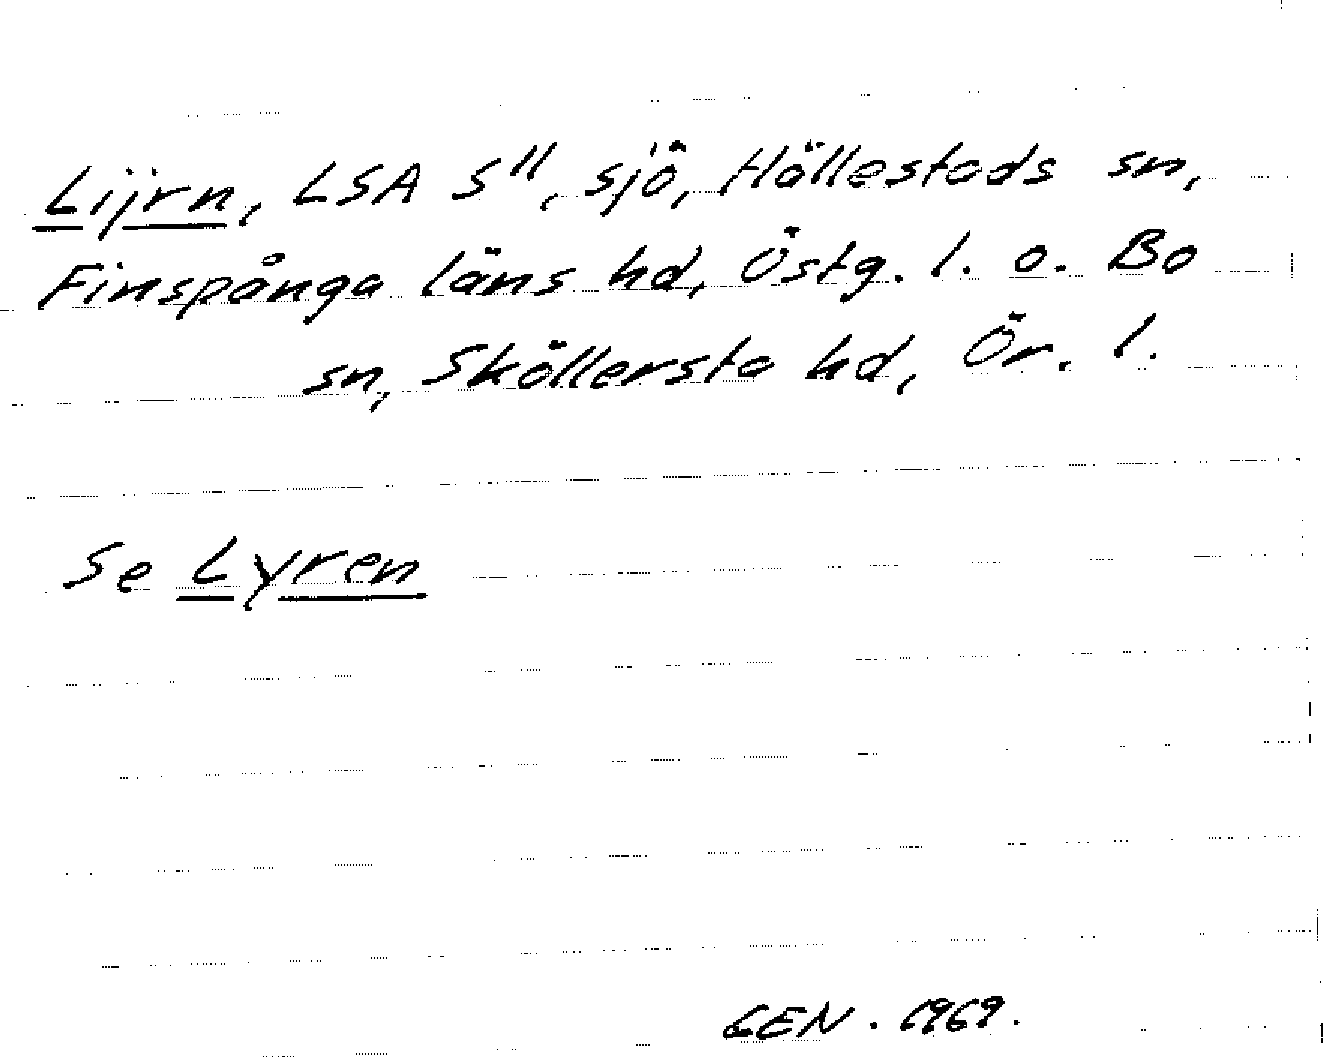 Lijrn, LSA S11, sjö, Hällestads sn,
Finspånga läns hd, Östg. l. o. Bo
sn, Sköllersta hd, Ör. l.
Se Lyren
GEN. 1969.